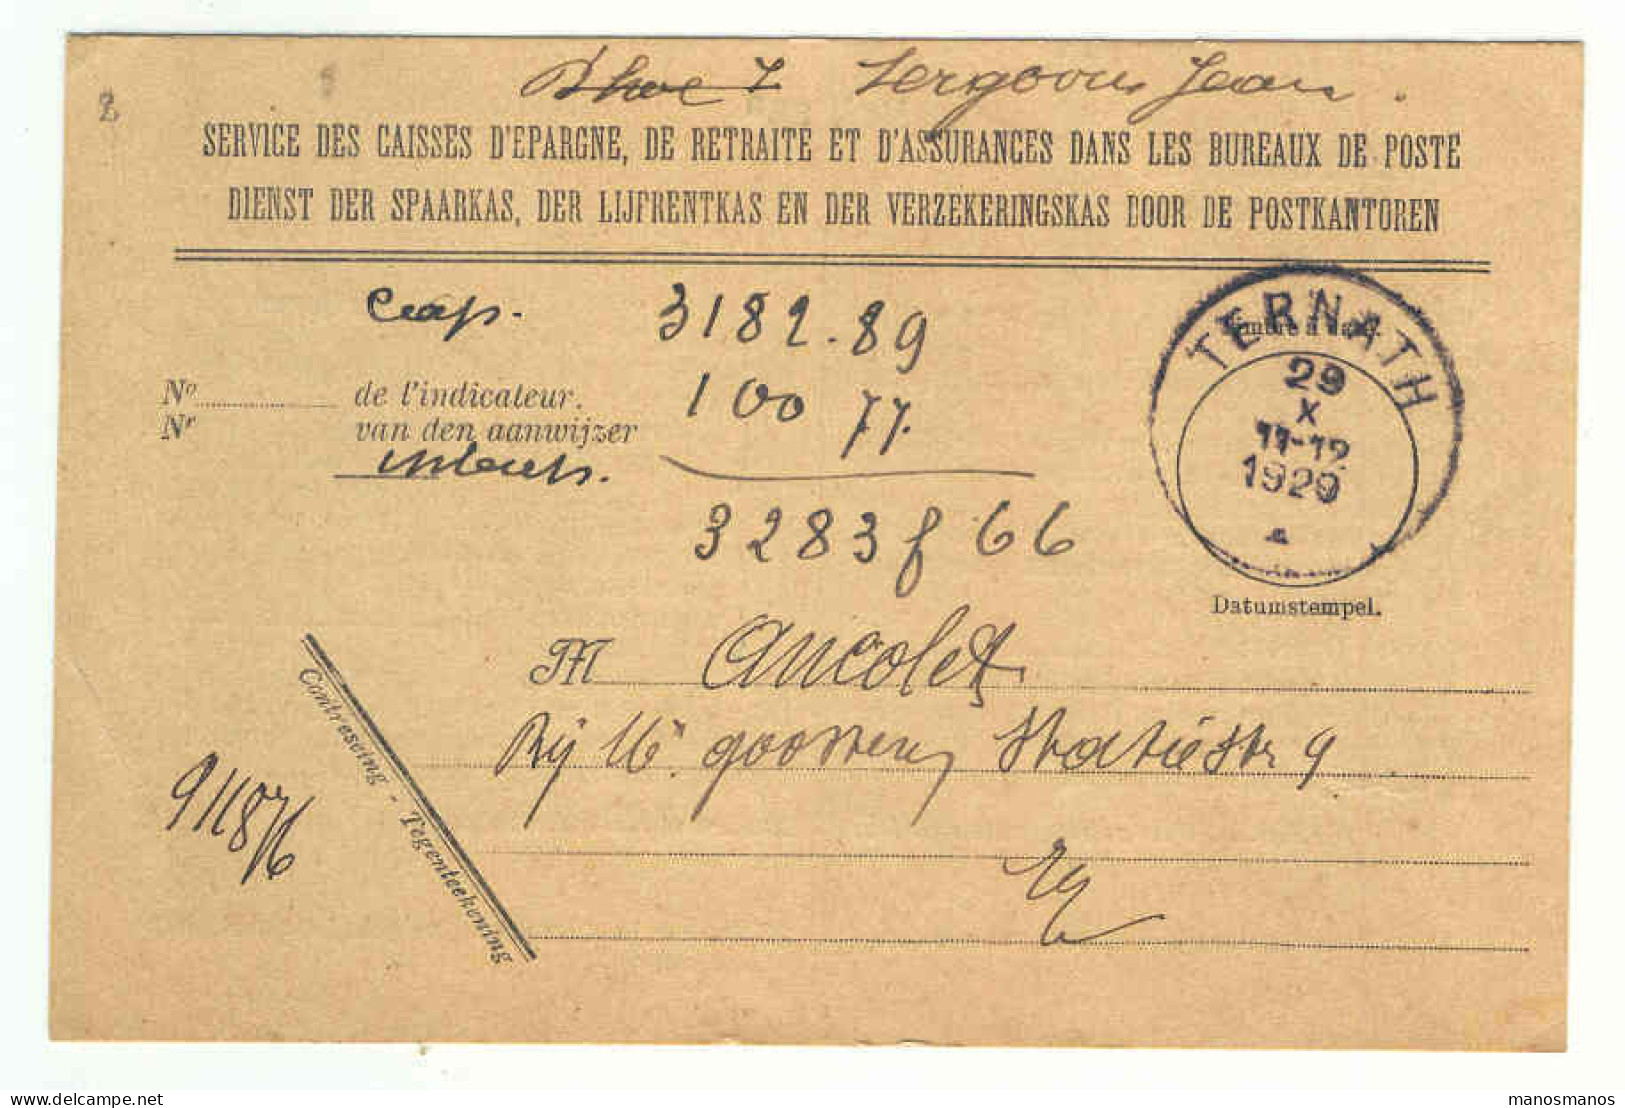 Jean.
SERVICE DES CAISSES D'EPARGNE, DE RETRAITE ET D'ASSURANCES DANS LES BUREAUX DE POSTE
DIENST DER SPAARKAS, DER LIJFRENTKAS EN DER VERZEKERINGSKAS DOOR DE POSTKANTOREN
Cap. 3182.89
No de l'indicateur. 100 77.
Nr van den aanwijzer
3283 f 66
TERNATH
29
X
11-12
1929
Datumstempel.
M Ancolet
Bij Mr goossens Statiestr 9
Contreseing - Tegenteekening
911876
manosmanos